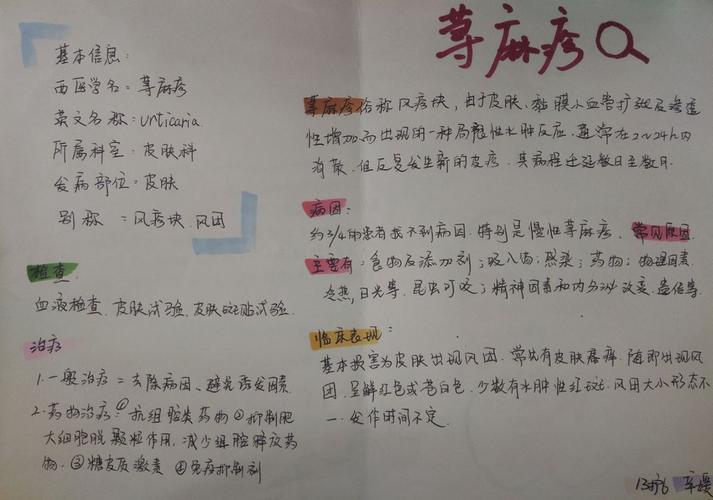 荨麻疹
基本信息:
西医学名:荨麻疹
英文名称:urticaria
所属科室:皮肤科
发病部位:皮肤
别称 =风疹块.风团
检查
血液检查、皮肤试验、皮肤斑贴试验.
治疗
1.一般治疗=去除病因、避免诱发因素
2.药物治疗:①抗组胺类药物②抑制肥
大细胞脱颗粒作用,减少组胺释放药
物.③糖皮质激素 ④免疫抑制剂
荨麻疹俗称风疹块,由于皮肤、黏膜小血管扩张及渗透
性增加而出现的一种局限性水肿反应.通常在2~24h内
消散,但反复发生新的皮疹.其病程迁延数日至数月.
病因:
约3/4的患者找不到病因.特别是慢性荨麻疹、常见原因
主要有:食物及添加剂;吸入物;感染;药物;物理因素
冷热,日光等.昆虫叮咬;精神因素和内分泌改变.遗传等.
临床表现:
基本损害为皮肤出现风团.常出有皮肤瘙痒.随即出现风
团.呈鲜红色或苍白色.少数有水肿性红斑.风团大小形态不
一.发作时间不定.